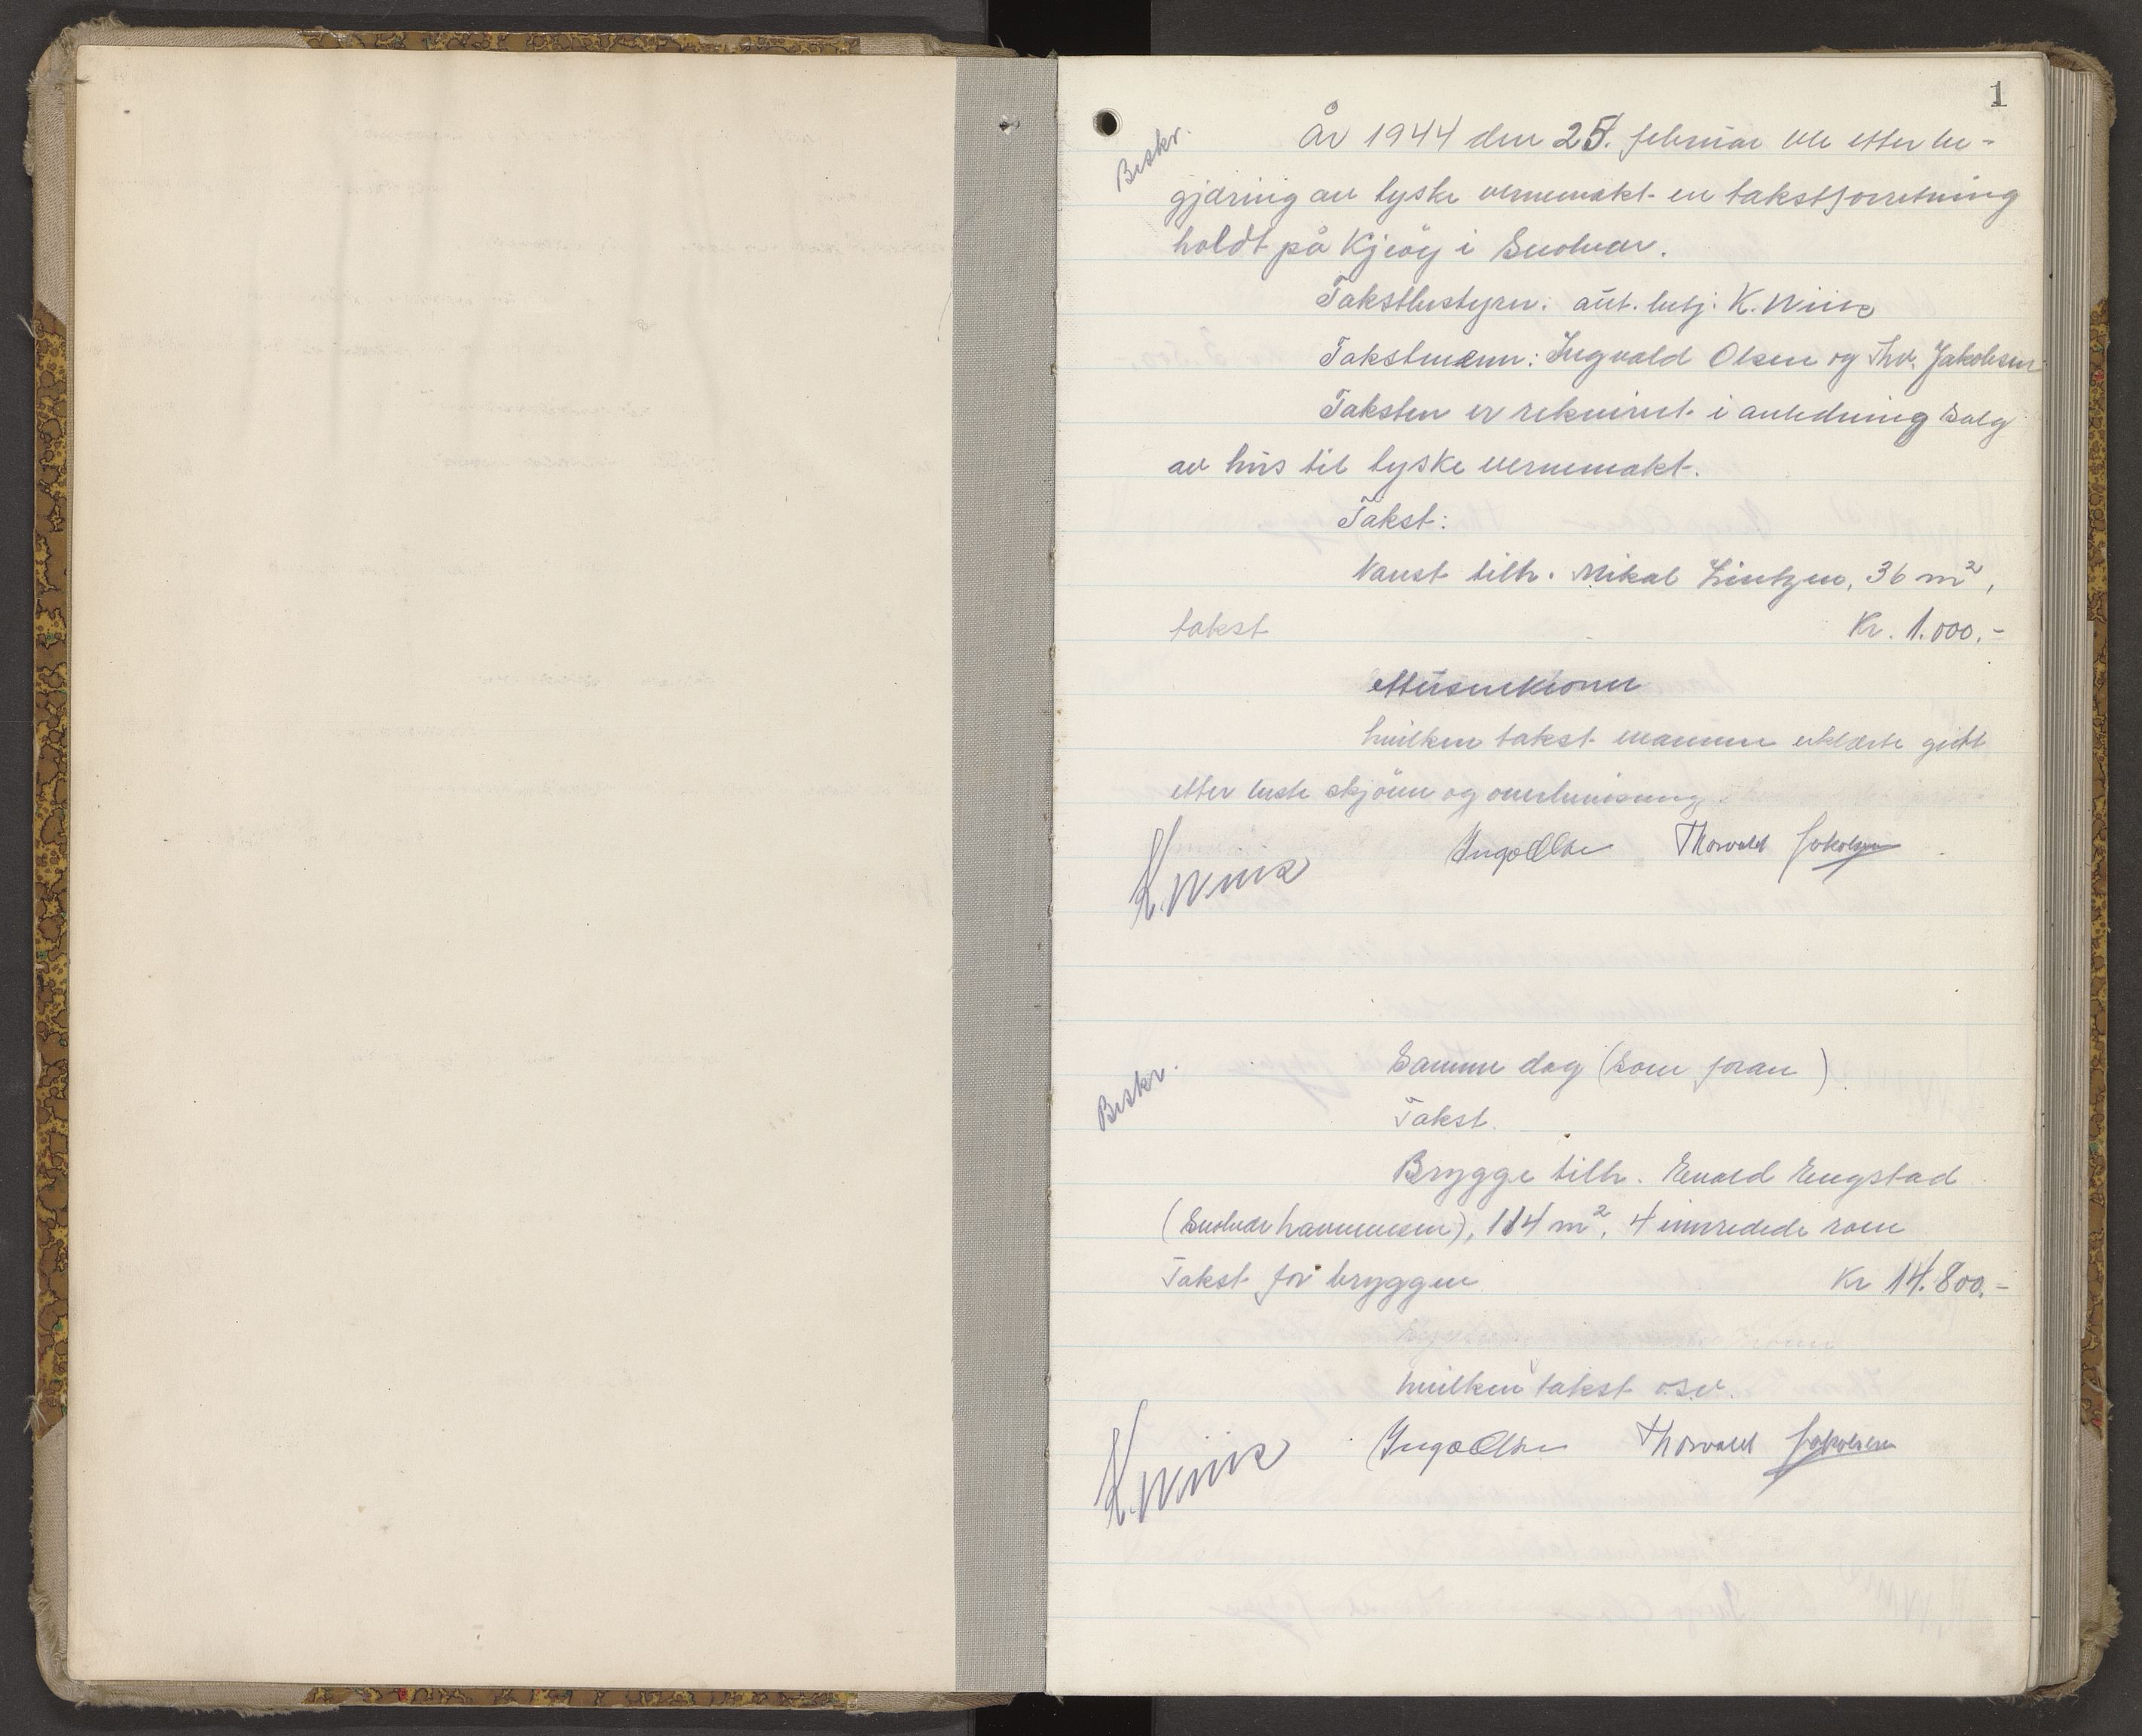 1
Beskr.
År 1944 den 25. februar ble etter be-
gjæring av tyske vernemakt en takstforretning
holdt på Kjeøy i Evolvær.
Takstbestyrer: aut. betj. K. Wiik
Takstmenn: Ingvald Olsen og Thv. Jakobsen
Taksten er rekvirert i anledning salg
av hus til tyske vernemakt.
Takst:
Naust tilh. Mikal Lintzen, 36 m²,
takst Kr. 1.000.-
hvilken takst mennene erklærte gitt
etter beste skjønn og overbevisning.
K. Wiik Ingv Olsen Thorvald Jakobsen
Beskr.
Samme dag (som foran)
Takst.
Brygge tilh. Evald Engstad
114 m², 4 innredede rom
Takst for bryggen Kr 14.800.-
hvilken takst o.s.v.
K. Wiik Ingv Olsen Thorvald Jakobsen